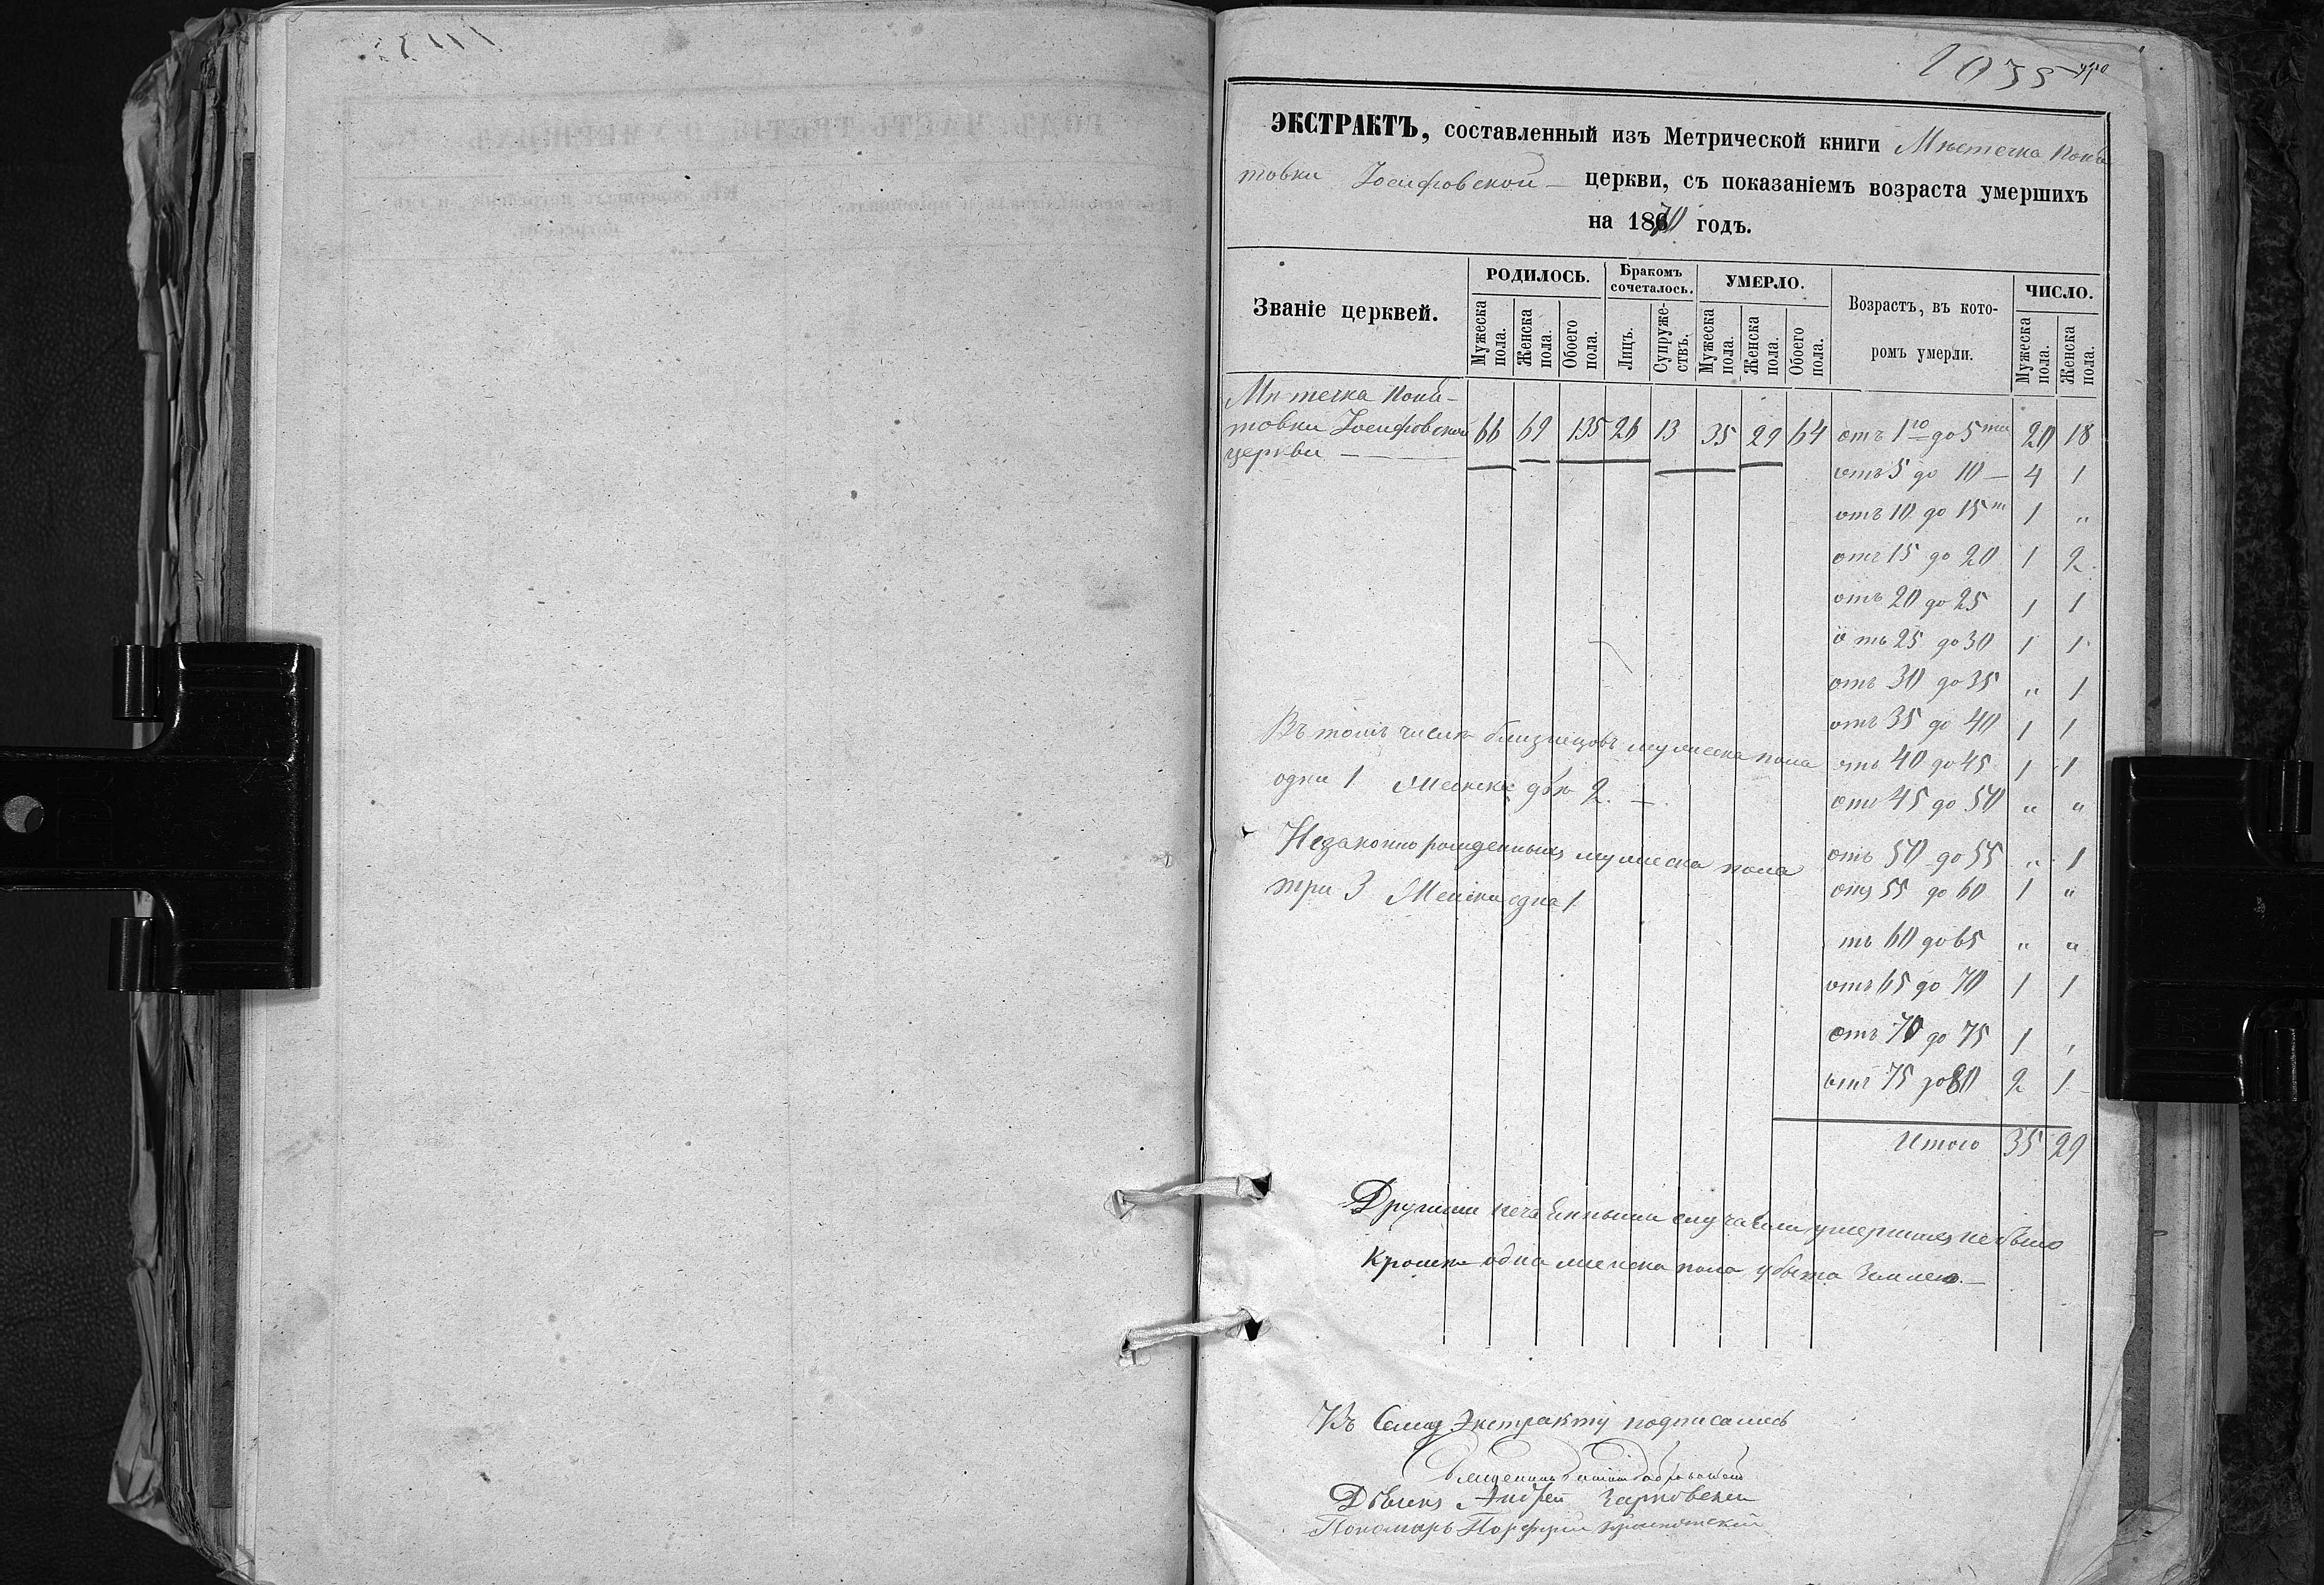 1035
ЭКСТРАКТЪ, составленный изъ Метрической книги Мѣстечка Копы-
товки Іосифовской церкви, съ показаніемъ возраста умершихъ
на 1870 годъ.
Званіе церквей.
РОДИЛОСЬ.
Мужеска пола.
Женска пола.
Обоего пола.
Бракомъ сочеталось.
Лицъ.
Супружествъ.
УМЕРЛО.
Мужеска пола.
Женска пола.
Обоего пола.
Возрастъ, въ кото-
ромъ умерли.
ЧИСЛО.
Мужеска пола.
Женска пола.
Мѣстечка
товки Іосифовской
церкви 66 69 135 26 13 35 29 64 отъ 1го до 5ти 20 18
отъ 5 до 10 — 4 1
отъ 10 до 15 1 „
отъ 15 до 20 1 2
отъ 20 до 25 1 1
отъ 25 до 30 1 1
отъ 30 до 35 „ 1
отъ 35 до 40 1 1
отъ 40 до 45 1 1
отъ 45 до 50 „ „
отъ 50 до 55 „ 1
отъ 55 до 60 1 „
тъ 60 до 65 „ „
отъ 65 до 70 1 1
отъ 70 до 75 1 „
отъ 75 до 80 2 1
Итого 35 29
Въ томъ числѣ близнецовъ мужеска пола
одни 1 Женска двѣ 2. —
Незаконнорожденныхъ мужеска пола
три 3 Женска одна 1
Другими случаями умершихъ небыло
Кромѣ одна женска пола убита Землею. —
Къ Сему Экстракту подписались
Дьякъ Андрей
Пономарь Порфирій